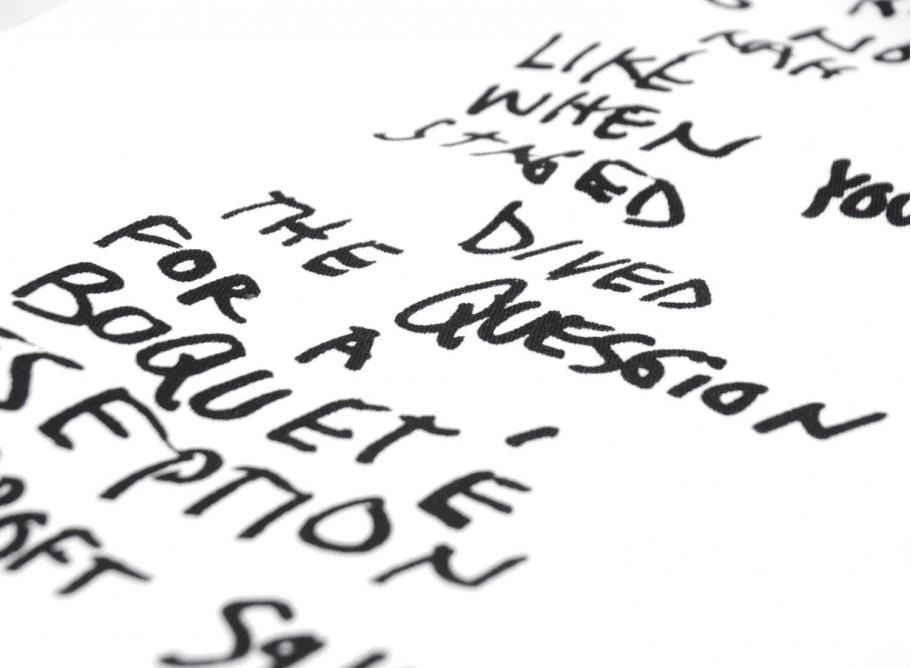 NAH
LIKE
WHEN YOU
STAGED
DIVED
THE QUESGION
FOR A
BOQUET'E
SEPTION